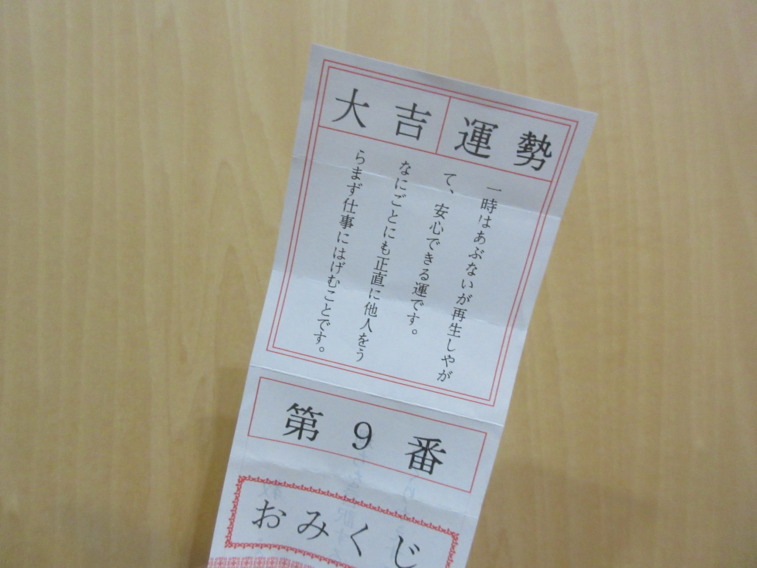 運勢
大吉
一時はあぶないが再生しやが
て、安心できる運です。
なにごとにも正直に他人をう
らまず仕事にはげむことです。
第9番
おみくじ